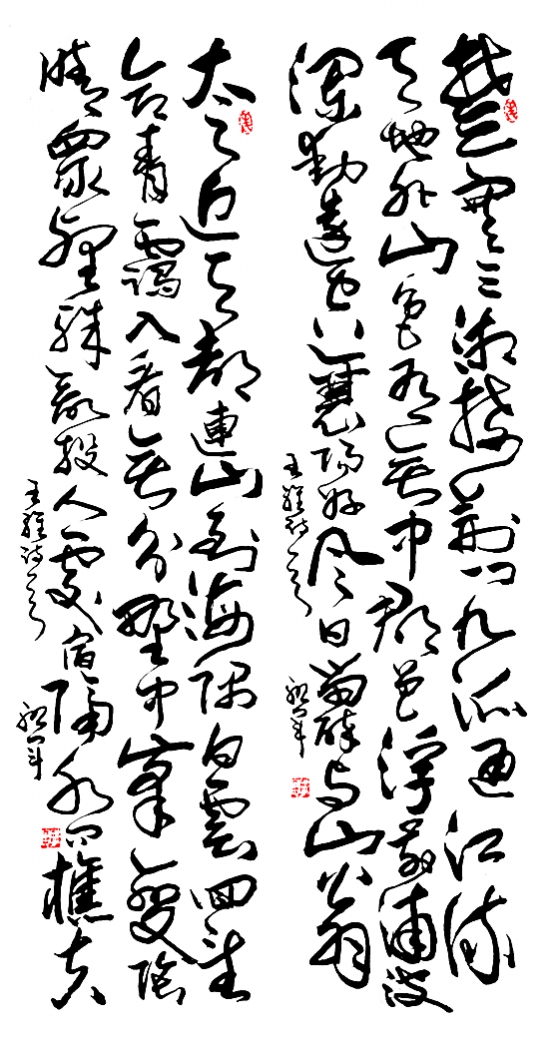 楚塞三湘接荊門九派通江流
天地外山色有無中郡邑浮前浦波
瀾動遠空襄陽好風日留醉與山翁
王維詩一首
太乙近天都連山到海隅白雲回望
合青靄入看無分野中峯變陰
晴眾壑殊欲投人處宿隔水問樵夫
王維詩一首